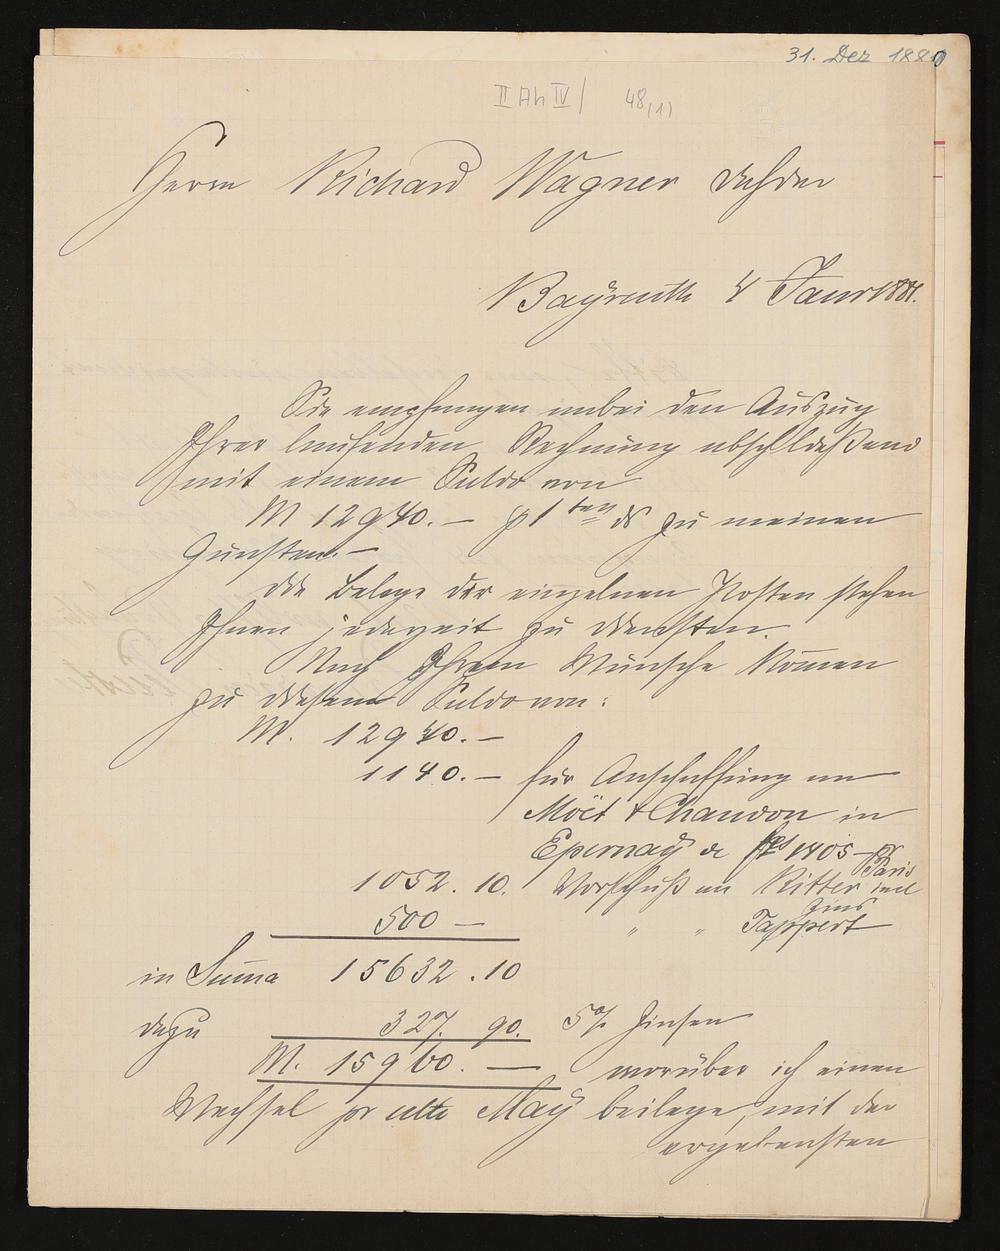 31. Dez 1880
II Ah IV / 48(1)
Herrn Richard Wagner dahier
Bayreuth 4 Januar 1881.
Sie empfangen anbei den Auszug
Ihrer laufenden Rechnung abschließend
mit einem Saldo von
M 12940.— p 1ten ds zu meinen
Gunsten.—
Die Belege der einzelnen Posten stehen
Ihnen jederzeit zu Diensten.
Nach Ihrem Wunsche kom̄en
zu diesem Saldo von:
M. 12940.—
1140.— für Anschaffung an
Moët & Chandon in
Epernay de frs 1405— pr Paris
1052.10. Vorschuß an Ritter incl Zins
500— " " Tappert
in Sum̄a 15632.10
dazu 327. 90. 5% Zinsen
M. 15960.— worüber ich einen
Wechsel pr ulto May beilege, mit der
ergebensten